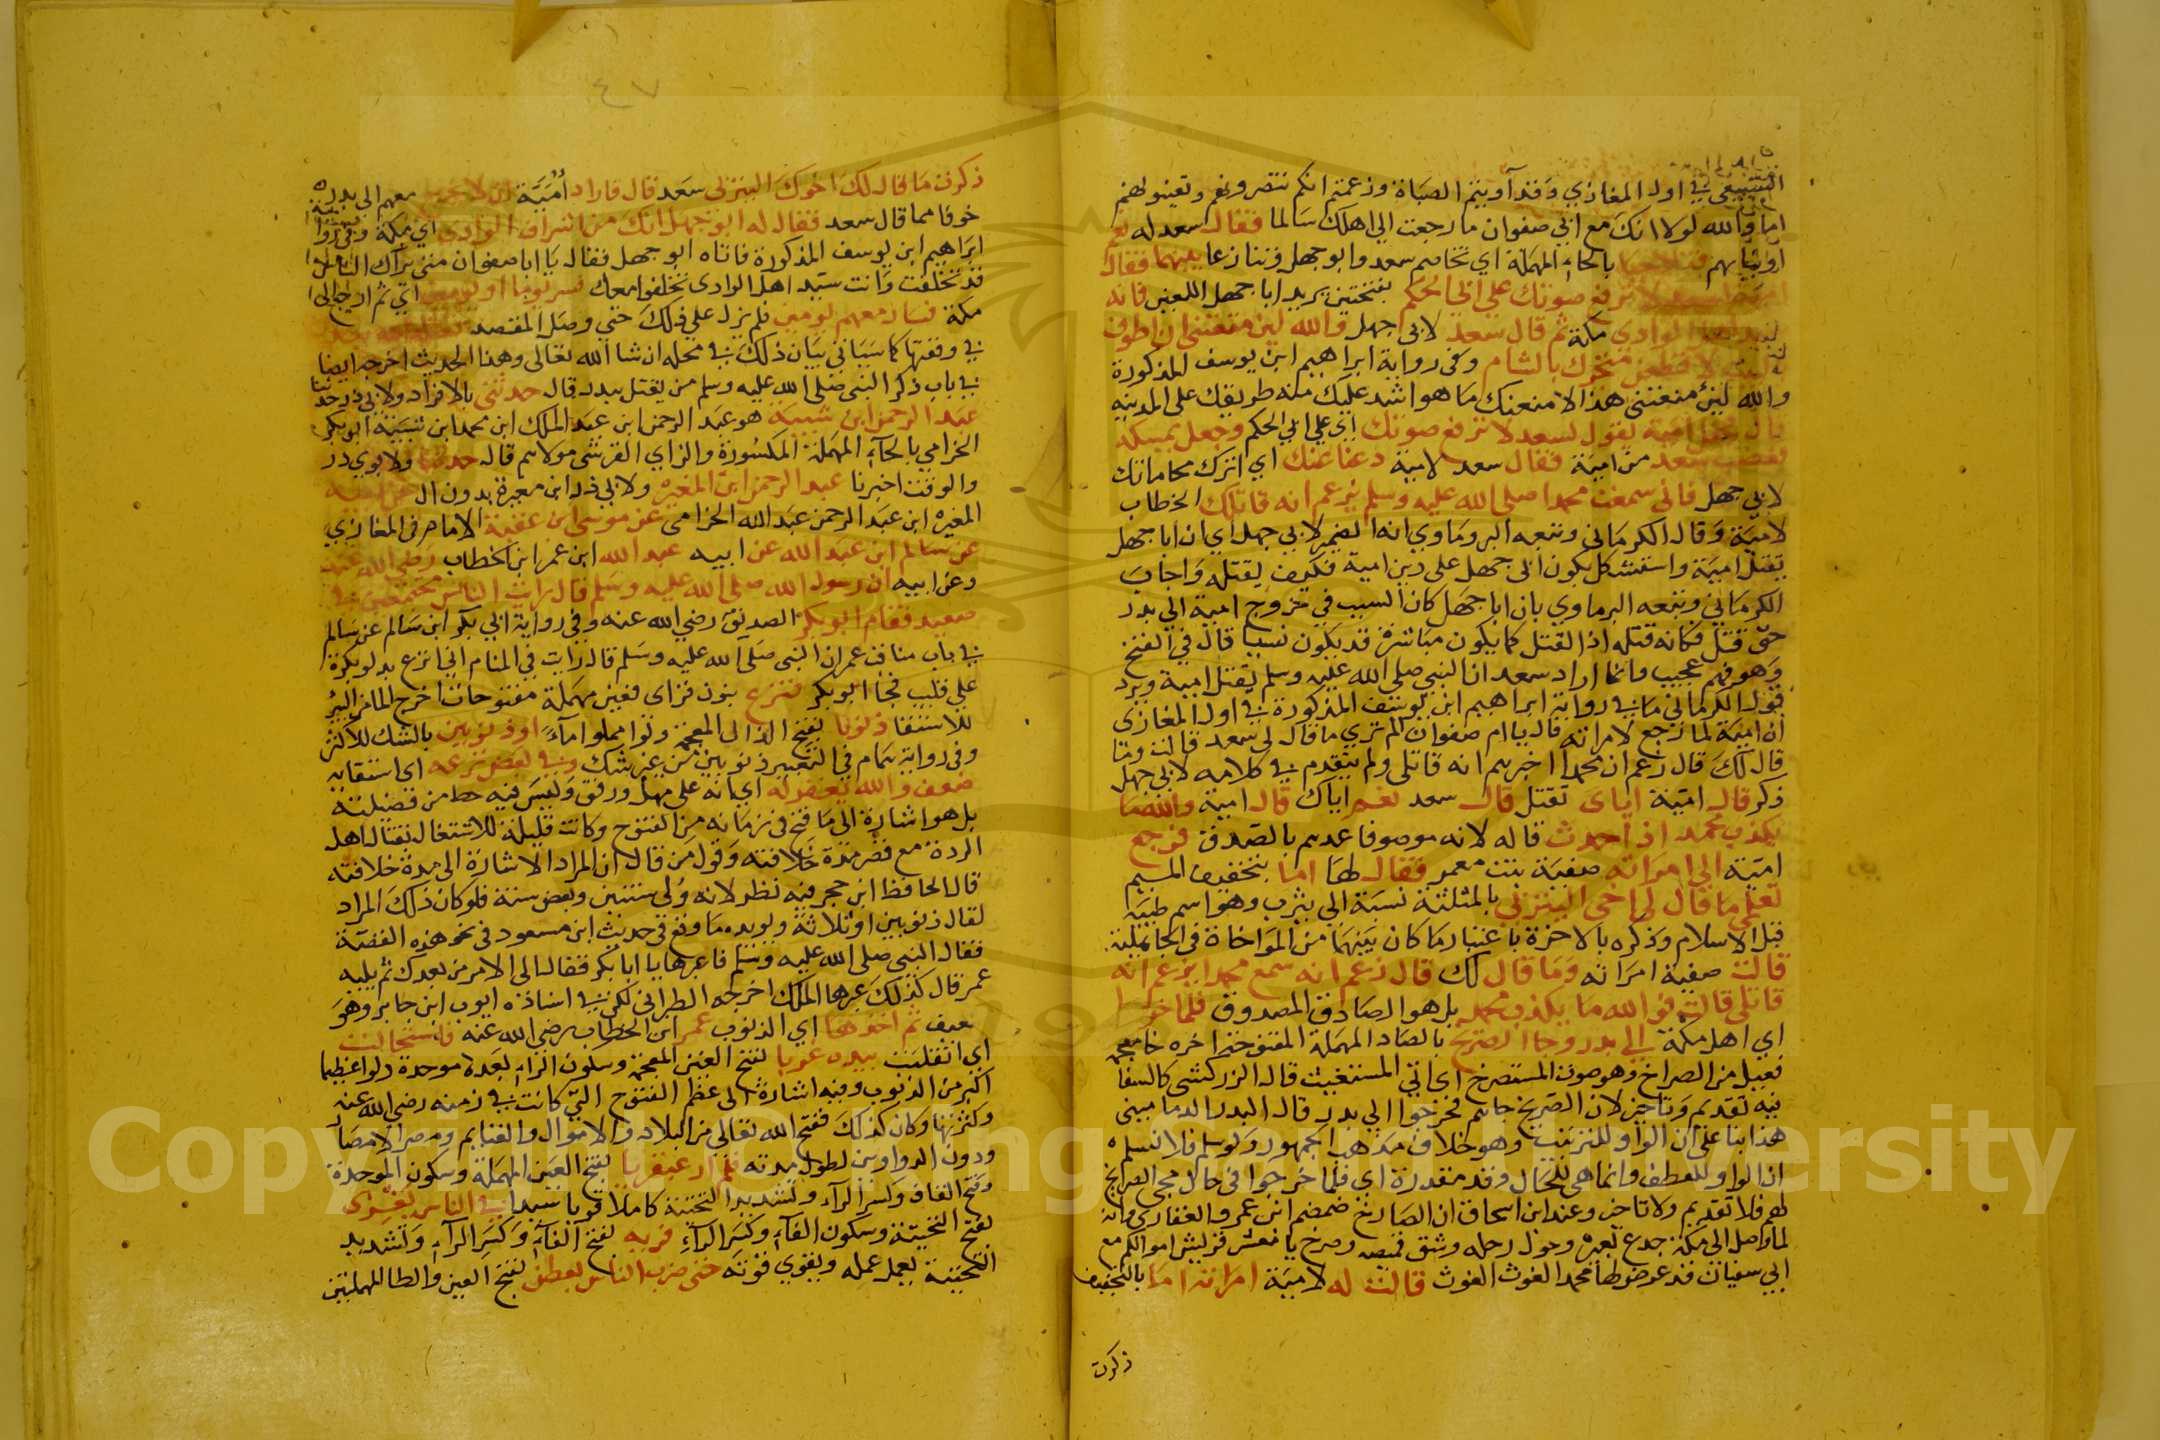 السبيعي في اول المغازي وقد آويتم الصباة وزعمتم انكم تنصرونهم وتعينونهم
اما والله لولا انك مع ابي صفوان ما رجعت الى اهلك سالما فقال سعد له نعم
بالحاء المهملة اي تخاصم سعد وابو جهل وتنازعا بينهما فقال
لا ترفع صوتك على ابي الحكم بفتحتين يريد ابا جهل اللعين فانه
الوادي مكة ثم قال سعد لابي جهل والله لين منعتني ان اطوف
لاقطعن متجرك بالشام وفي رواية ابراهيم ابن يوسف المذكورة
والله لئن منعتني هذا لامنعنك ما هو اشد عليك منه طريقك على المدينه
قال فجعل امية يقول لسعد لا ترفع صوتك اي على ابي الحكم وجعل يمسكه
فغضب سعد من امية فقال سعد لامية دعنا عنك اي اترك محاماتك
لابي جهل فاني سمعت محمدا صلى الله عليه وسلم يزعم انه قاتلك الخطاب
لامية وقال الكرماني وتبعه البرماوي انه الضمير لابي جهل اي ان ابا جهل
يقتل امية واستشكل بكون ابي جهل على دين امية فكيف يقتله واجاب
الكرماني وتبعه البرماوي بان ابا جهل كان السبب في خروج امية الى بدر
حتى قتل فكانه قتله اذ القتل كما يكون مباشرة قد يكون تسببا قال في الفتح
وهو فهم عجيب وانما اراد سعد ان النبي صلى الله عليه وسلم يقتل امية ويرد
قول الكرماني ما في رواية ابراهيم ابن يوسف المذكورة في اول المغازي
ان امية لما رجع لامراته قال يا ام صفوان الم تري ما قال لي سعد قالت وما
قال لك قال زعم ان محمدا اخبرهم انه قاتلي ولم يتقدم في كلامه لابي جهل
ذكر قال امية اياي تقتل قال سعد نعم اياك قال امية والله ما
يكذب محمد اذا حدث قاله لانه موصوفا عندهم بالصدق فرجع
امية الى امراته صفية بنت معمر فقال لها اما بتخفيف الميم
تعلمي ما قال لي اخي اليثربي بالمثلثة نسبة الى يثرب وهو اسم طيبة
قبل الاسلام وذكره بالاخوة باعتبار ما كان بينهما من المواخاة في الجاهلية
قالت صفية امراته وما قال لك قال زعم انه سمع محمدا يزعم انه
قاتلي قالت فو الله ما يكذب محمد بل هو الصادق المصدوق فلما خرجوا
اي اهل مكة الى بدر وجا الصريخ بالصاد المهملة المفتوحة اخره خا معجمة
فعيل من الصراخ وهو صوت المستصرخ اي اتي المستغيث قال الزركشي كالسفاقسي
فيه تقديم وتاخير لان الصريخ جاهم فخرجوا الى بدر قال البدر الدماميني
هذا بنا على ان الواو للترتيب وهو خلاف مذهب الجمهور ولو سلم فلا نسلم
ان الواو للعطف وانما هي للحال وقد مقدرة اي فلما خرجوا في حال مجي الصريخ
لهم فلا تقديم ولا تاخير وعند ابن اسحاق ان الصارخ ضمضم ابن عمرو الغفاري وانه
لما وصل الى مكة جدع بعيره وحول رحله وشق قميصه وصرخ يا معشر قريش اموالكم مع
ابي سفيان قد عرض لها محمد الغوث الغوث قالت له لامية امراته اما بالتخفيف
ذكرت
٤٧
ذكرت ما قال لك اخوك اليثربي سعد قال فاراد امية ان لا يخرج معهم الى بدر
خوفا مما قال سعد فقال له ابو جهل انك من اشراف الوادي اي مكة وفي رواية
ابراهيم ابن يوسف المذكورة فاتاه ابو جهل فقال يا ابا صفوان متى يراك الناس
قد تخلفت وانت سيد اهل الوادي تخلفوا معك فسر يوما او يومين اي ثم ارجع الى
مكة فسار معهم يومين فلم يزل على ذلك حتى وصل المقصد
في وقعتها كما سياتي بيان ذلك في محله ان شا الله تعالى وهذا الحديث اخرجه ايضا
في باب ذكر النبي صلى الله عليه وسلم من يقتل ببدر قال حدثني بالافراد ولابي ذر حدثنا
عبد الرحمن ابن شيبة هو عبد الرحمن ابن عبد الملك ابن محمد ابن شيبة ابو بكر
الحزامي بالحاء المهملة المكسورة والزاي القرشي مولاهم قال حدثنا ولابوي ذر
والوقت اخبرنا عبد الرحمن ابن المغيرة ولابي ذر ابن مغيرة بدون ال
المغيره ابن عبد الرحمن عبد الله الحزامي عن موسى ابن عقبة الامام في المغازي
عن سالم ابن عبد الله عن ابيه عبد الله ابن عمر ابن الخطاب رضي الله عنه
وعن ابيه ان رسول الله صلى الله عليه وسلم قال رايت الناس مجتمعين في
صعيد فقام ابو بكر الصديق رضي الله عنه وفي رواية ابي بكر ابن سالم عن سالم
في باب مناقب عمر ان النبي صلى الله عليه وسلم قال رايت في المنام اني انزع بدلو بكرة
على قليب فجا ابو بكر فنزع بنون فزاي فعين مهملة مفتوحات اخرج الما من البئر
للاستقا ذنوبا بفتح الذال المعجمة دلوا مملوا ماء او ذنوبين بالشك للاكثر
وفي رواية همام في التعبير ذنوبين من غير شك وفي بعض نزعه اي استقايه
ضعف والله يغفر له اي انه على مهل ورفق وليس فيه حط من فضيلته
بل هو اشارة الى ما فتح في زمانه من الفتوح وكانت قليلة للاشتغال بقتال اهل
الردة مع قصر مدة خلافته وقول من قال ان المراد الاشارة الى مدة خلافته
قال الحافظ ابن حجر فيه نظر لانه ولي سنتين وبعض سنة فلو كان ذلك المراد
لقال ذنوبين او ثلاثة ويويده ما وقع في حديث ابن مسعود في نحو هذه القصة
فقال النبي صلى الله عليه وسلم فاعبرها يا ابا بكر فقال الي الامر من بعدك ثم يليه
عمر قال كذلك عبرها الملك اخرجه الطبراني لكن في اسناذه ايوب ابن جابر وهو
ضعيف ثم اخذها اي الذنوب عمر ابن الخطاب رضي الله عنه فاستحالت
اي انقلبت بيده غربا بفتح الغين المعجمة وسكون الراء بعدها موحدة دلوا عظيما
اكبر من الذنوب وفيه اشارة الى عظم الفتوح التي كانت في زمنه رضي الله عنه
وكثرتها وكان كذلك ففتح الله تعالى من البلاد والاموال والغنايم ومصر الامصار
ودون الدواوين لطول مدته فلم ار عبقريا بفتح العين المهملة وسكون الموحدة
وفتح القاف وكسر الراء وتشديد التحتية كاملا قويا سيدا في الناس يفري
بفتح التحتية وسكون الفاء وكسر الراء فريه بفتح الفاء وكسر الراء وتشديد
التحتية يعمل عمله ويقوي قوته حتى ضرب الناس بعطن بفتح العين والطا المهملتين
Copyright © King Saud University